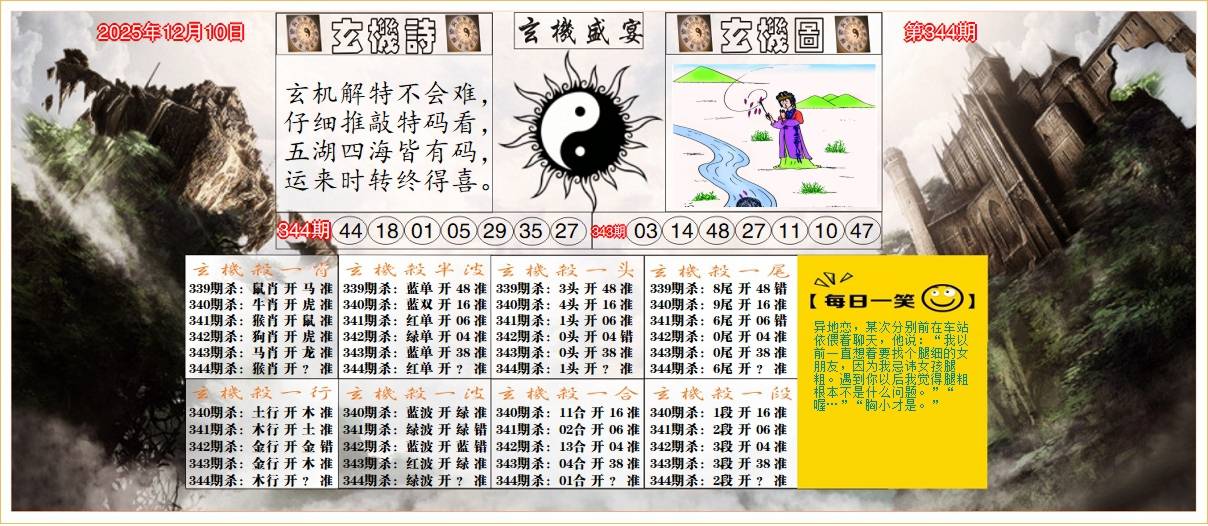 2025年12月10日
玄機詩
玄機盛宴
玄機圖
第344期
玄机解特不会难，
仔细推敲特码看，
五湖四海皆有码，
运来时转终得喜。
344期 44 18 01 05 29 35 27 343期 03 14 48 27 11 10 47
玄機殺一肖
339期杀: 鼠肖 开 马 准
340期杀: 牛肖 开 虎 准
341期杀: 猴肖 开 鼠 准
342期杀: 狗肖 开 虎 准
343期杀: 马肖 开 龙 准
344期杀: 猴肖 开 ? 准
玄機殺半波
339期杀: 蓝单 开 48 准
340期杀: 蓝双 开 16 准
341期杀: 红单 开 06 准
342期杀: 绿单 开 04 准
343期杀: 蓝单 开 38 准
344期杀: 红单 开 ? 准
玄機殺一头
339期杀: 3头 开 48 准
340期杀: 4头 开 16 准
341期杀: 1头 开 06 准
342期杀: 0头 开 04 错
343期杀: 0头 开 38 准
344期杀: 1头 开 ? 准
玄機殺一尾
339期杀: 8尾 开 48 错
340期杀: 9尾 开 16 准
341期杀: 6尾 开 06 错
342期杀: 0尾 开 04 准
343期杀: 0尾 开 38 准
344期杀: 7尾 开 ? 准
【每日一笑】
异地恋，某次分别前在车站
依偎着聊天，他说：“我以
前一直想着要找个腿细的女
朋友，因为我忌讳女孩腿
粗。遇到你以后我觉得腿粗
根本不是什么问题。”“
喔…”“胸小才是。”
玄機殺一行
340期杀: 土行 开 木 准
341期杀: 木行 开 土 准
342期杀: 金行 开 金 错
343期杀: 金行 开 木 准
344期杀: 木行 开 ? 准
玄機殺一波
340期杀: 蓝波 开 绿 准
341期杀: 绿波 开 绿 错
342期杀: 蓝波 开 蓝 错
343期杀: 红波 开 绿 准
344期杀: 绿波 开 ? 准
玄機殺一合
340期杀: 11合 开 16 准
341期杀: 02合 开 06 准
342期杀: 13合 开 04 准
343期杀: 04合 开 38 准
344期杀: 01合 开 ? 准
玄機殺一段
340期杀: 1段 开 16 准
341期杀: 2段 开 06 准
342期杀: 3段 开 04 准
343期杀: 3段 开 38 准
344期杀: 2段 开 ? 准